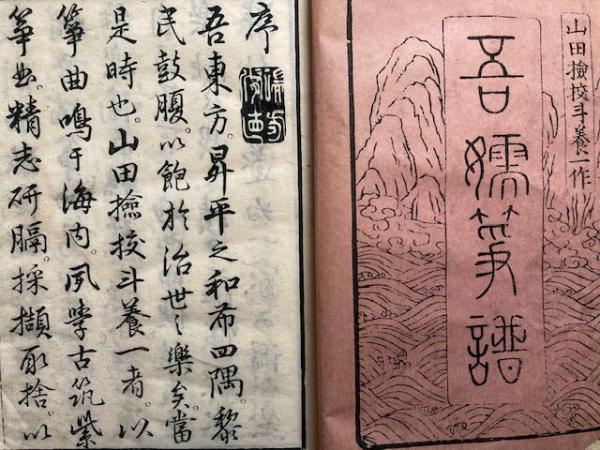 山田撿挍斗養一作
吾嬬箏譜
序
吾東方。昇平之和布四隅。黎
民鼓腹。以飽於治世之樂矣。當
是時也。山田撿挍斗養一者。以
箏曲鳴于海内。夙學古筑紫
箏曲。精志研膈。採擷取捨。以